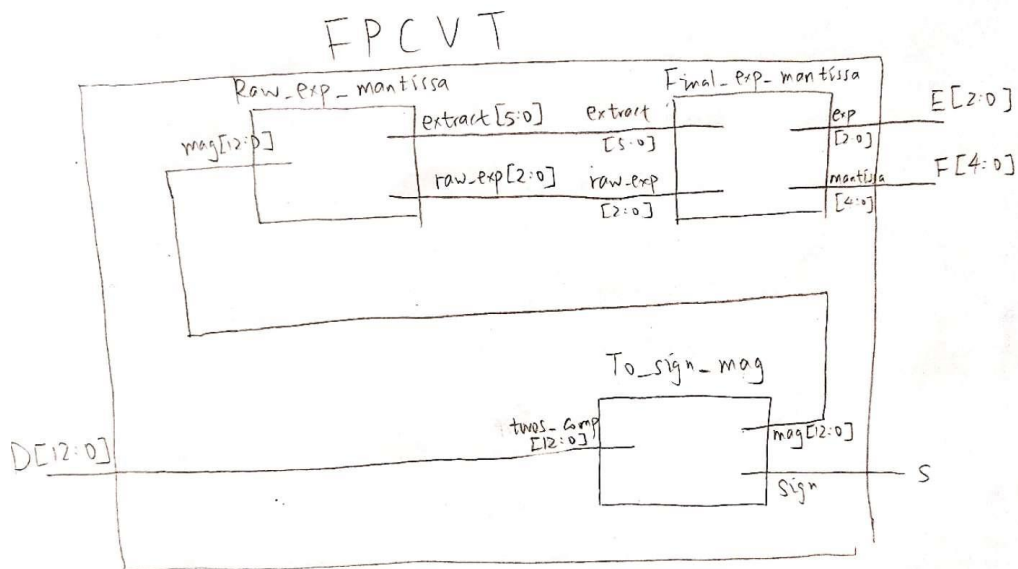 FPCVT
Raw_exp_mantissa
Final_exp_mantissa
mag[12:0]
extract[5:0]
raw_exp[2:0]
extract
[5:0]
raw_exp
[2:0]
exp
[2:0]
mantissa
[4:0]
E[2:0]
F[4:0]
To_sign_mag
D[12:0]
twos_comp
[12:0]
mag[12:0]
sign
S